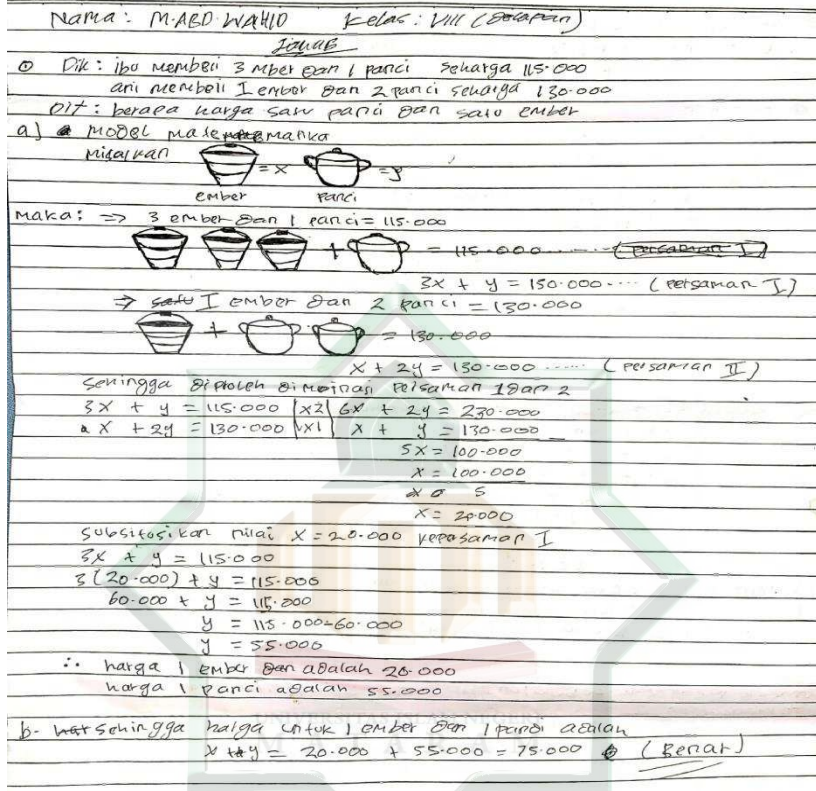 Nama : M.ABD.WAHID Kelas : VIII (Delapan)
Jawab
Dik : ibu membeli 3 mber dan 1 panci seharga 115.000
ani membeli I ember dan 2 panci seharga 130.000
Dit : berapa harga satu panci dan satu ember
a) model matematika
Misalkan = x = y
ember panci
Maka : => 3 ember dan 1 panci = 115.000
+ = 115.000 ...... (persamaan I)
3x + y = 150.000 .... (persaman I)
=> satu I ember dan 2 panci = 130.000
+ = 130.000
x + 2y = 130.000 ...... (persaman II)
Sehingga diproleh eimeinasi persaman 1 dan 2
3x + y = 115.000 |x2| 6x + 2y = 230.000
x + 2y = 130.000 |x1| x + y = 130.000 _
5x = 100.000
x = 100.000
5
x = 20.000
Subsitusikan nilai x = 20.000 kepersaman I
3x + y = 115.000
3(20.000) + y = 115.000
60.000 + y = 115.000
y = 115.000-60.000
y = 55.000
∴ harga 1 ember dan adalah 20.000
harga 1 panci adalah 55.000
b. har sehingga harga untuk 1 ember dan 1 panci adalah
x + y = 20.000 + 55.000 = 75.000 (Benar)